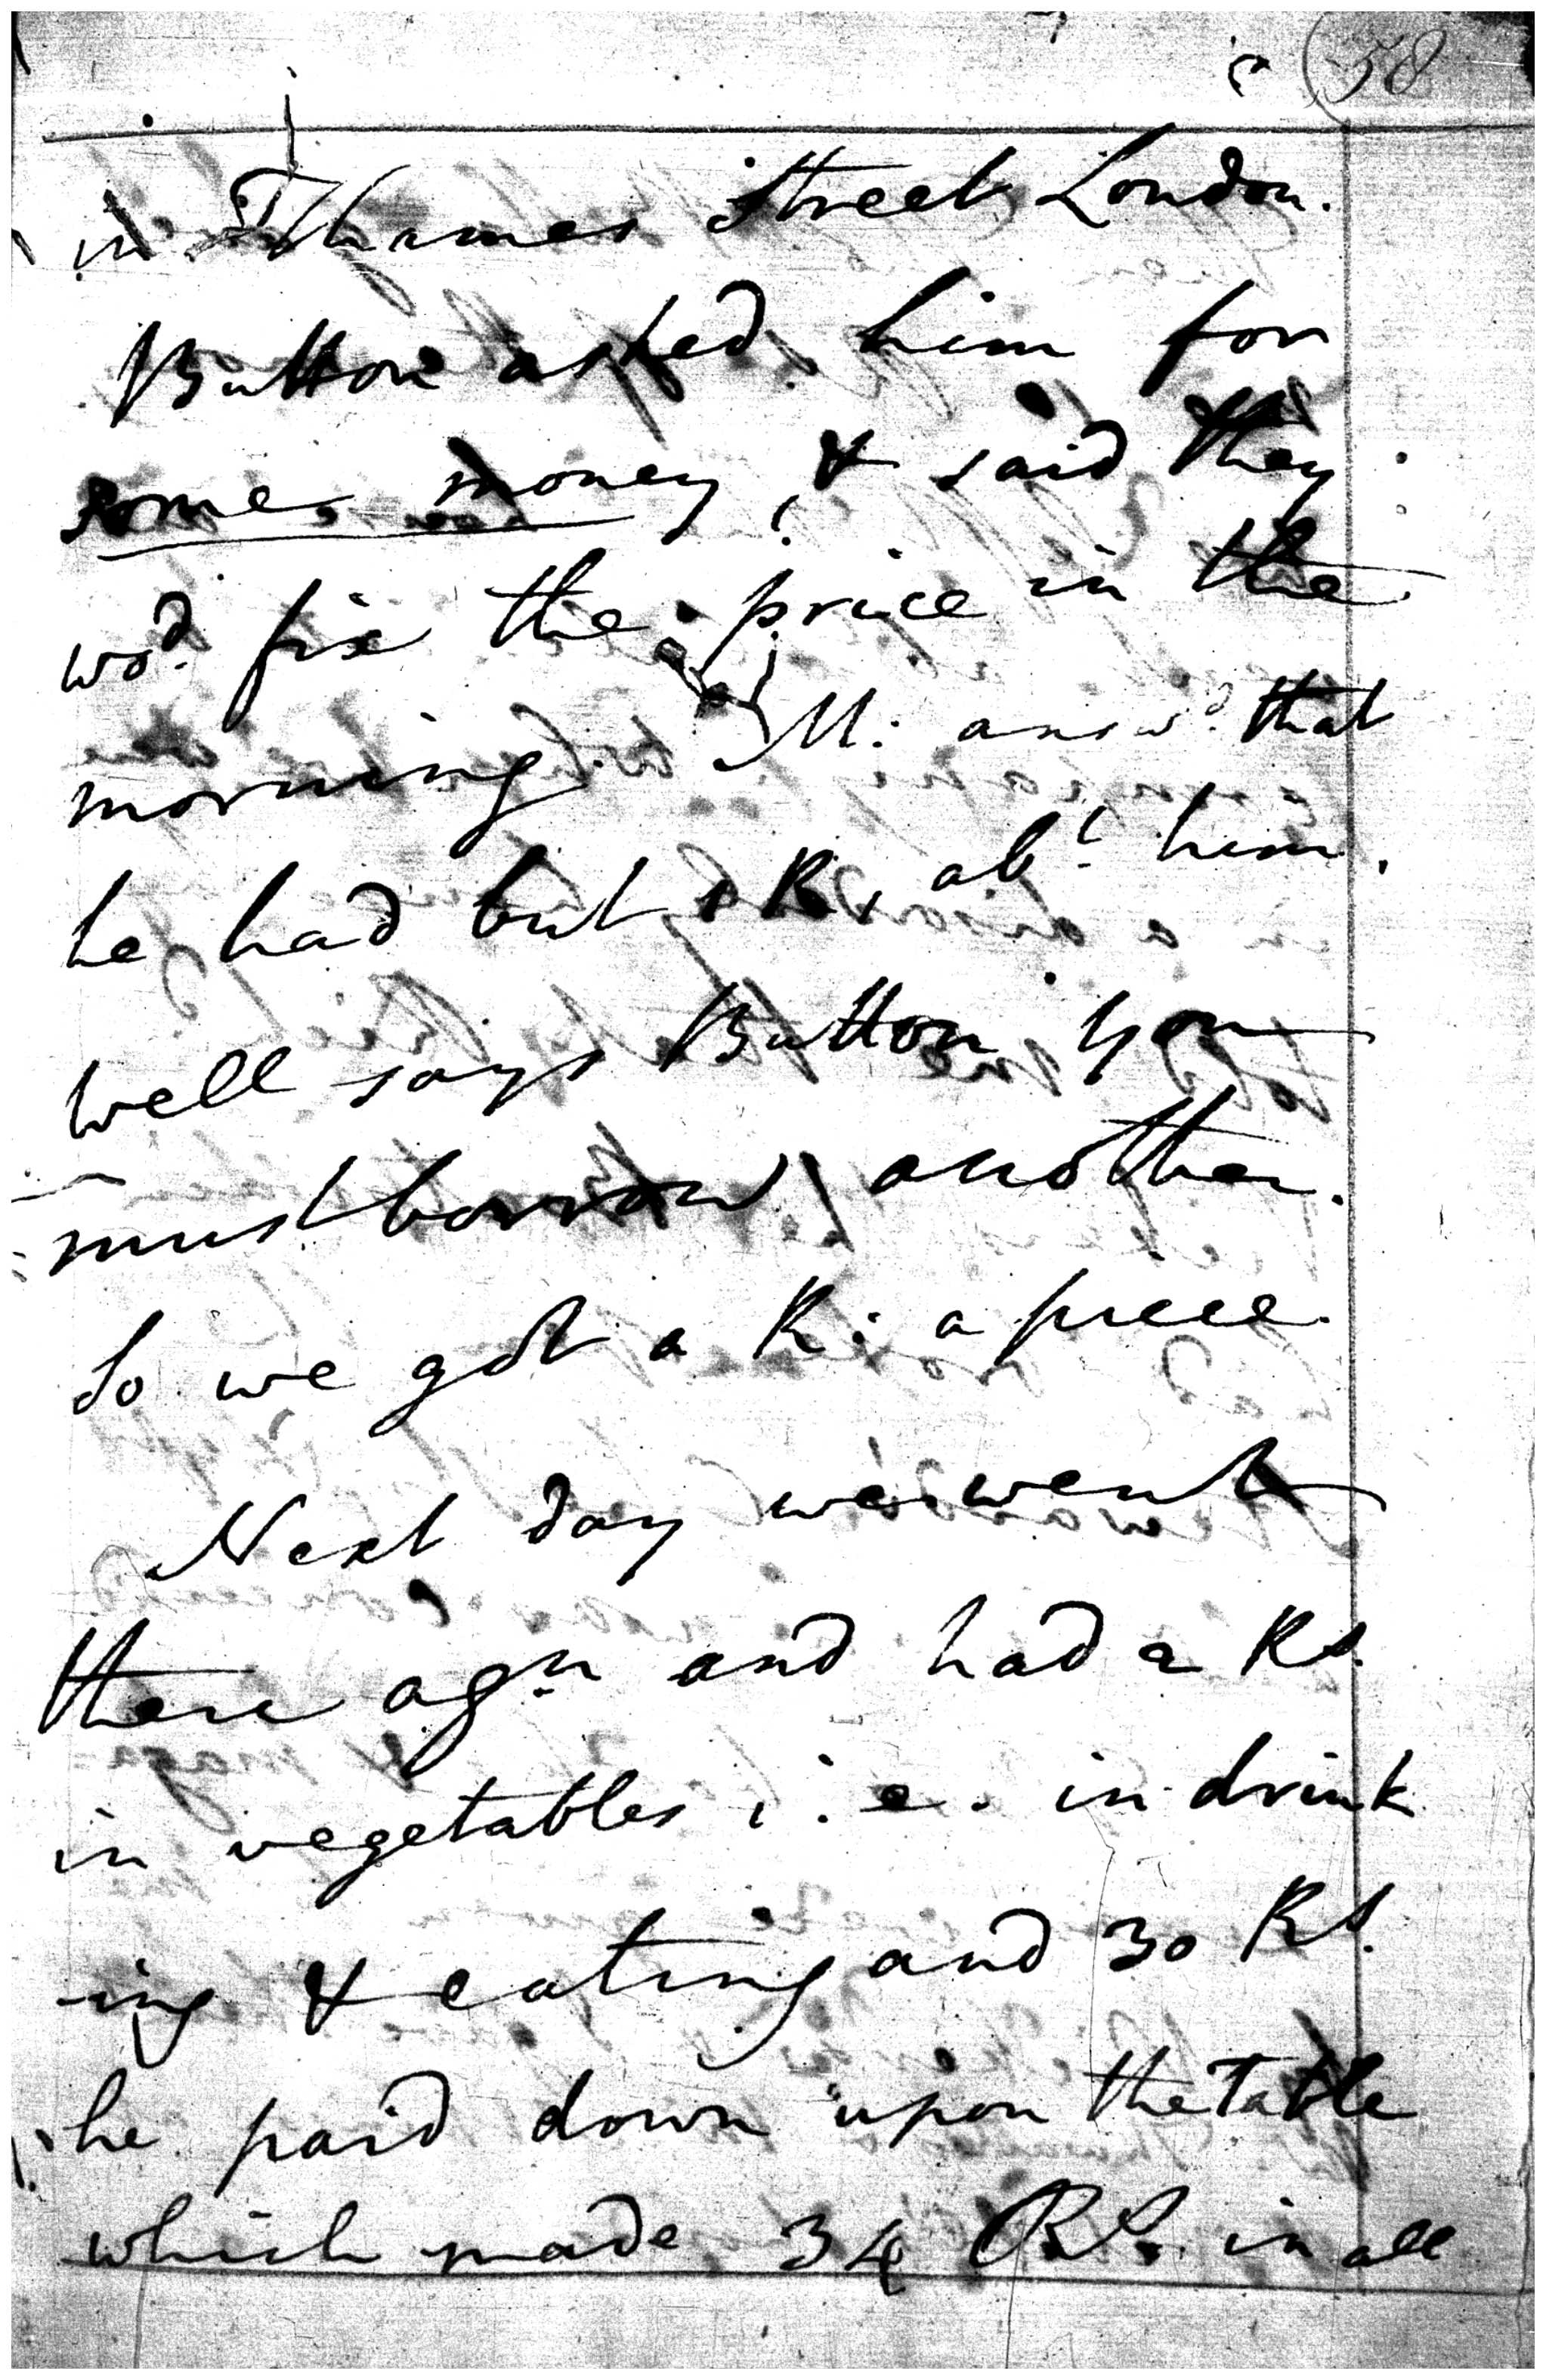 58
in Thames Street London.
Button asked him for
some money, & said they
wod. fix the price in the
morning. M: answd. that
he had but 1 R, abt. him.
well says Button you
must borrow another.
So we got a R: a piece.
Next day we went
there agn. and had 2 Rs.
in vegetables, i.e. in drink
-ing & eating and 30 Rs.
he paid down upon the Table
which made 34 Rs. in all